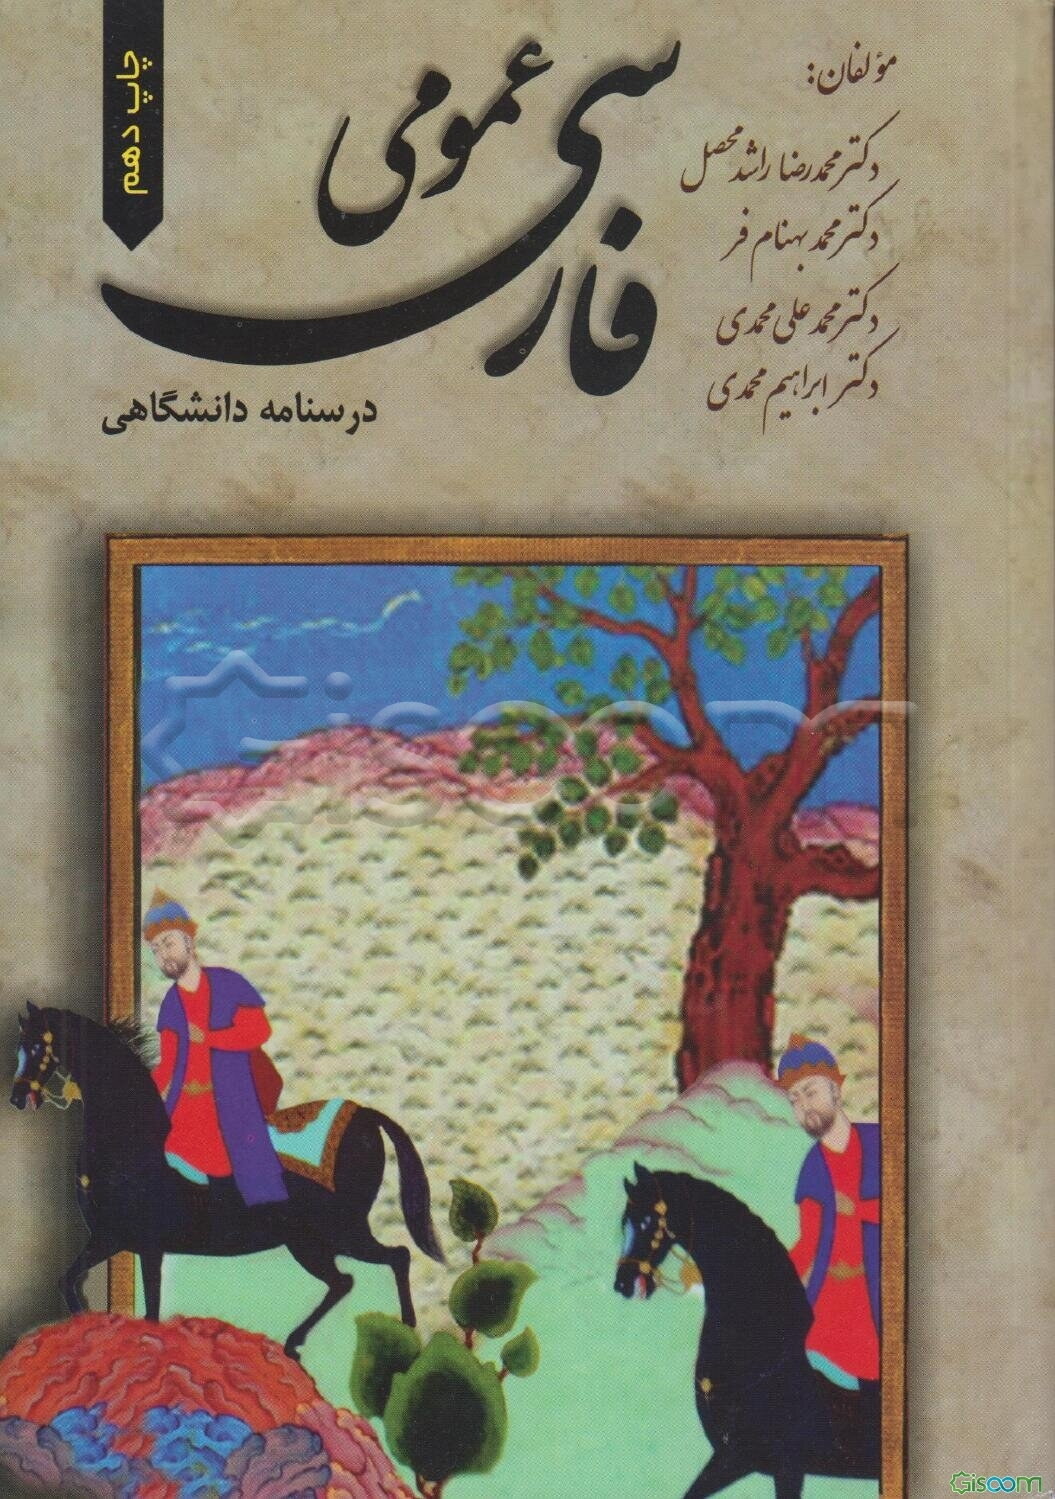 چاپ دهم
فارسی عمومی
درسنامه دانشگاهی
مؤلفان:
دکتر محمدرضا راشد محصل
دکتر محمد بهنام فر
دکتر محمد علی محمدی
دکتر ابراهیم محمدی
Gisoom
Gisoom